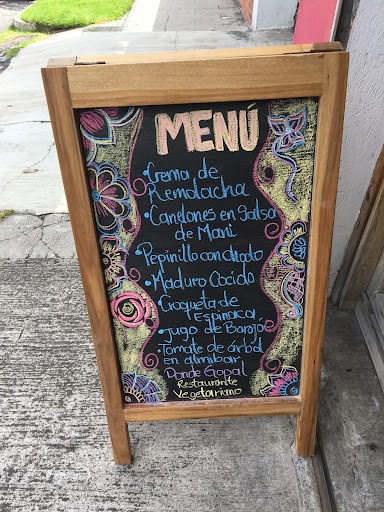 MENÚ
• Crema de
Remolacha
• Canelones en Salsa
de Maní
• Pepinillo con choclo
• Maduro Cocido
Croqueta de
espinaca
• Jugo de Borojó
• Tomate de árbol
en almibar
Donde Gopal
Restaurante
Vegetariano